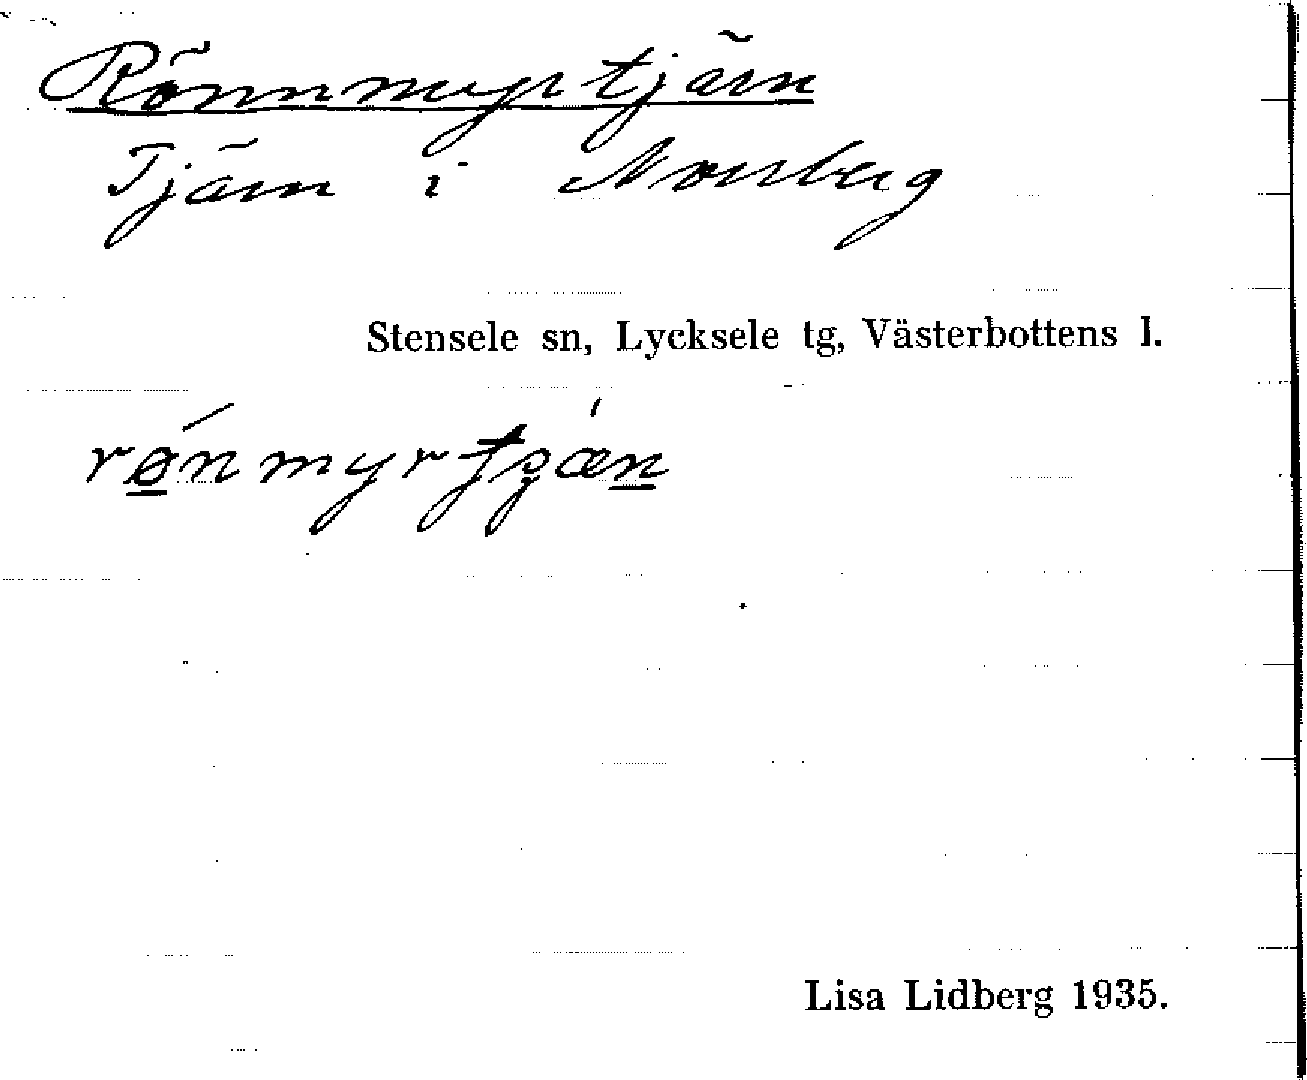 Rönnmyrtjärn
Tjärn i Norrberg
Stensele sn, Lycksele tg, Västerbottens l.
Lisa Lidberg 1935.